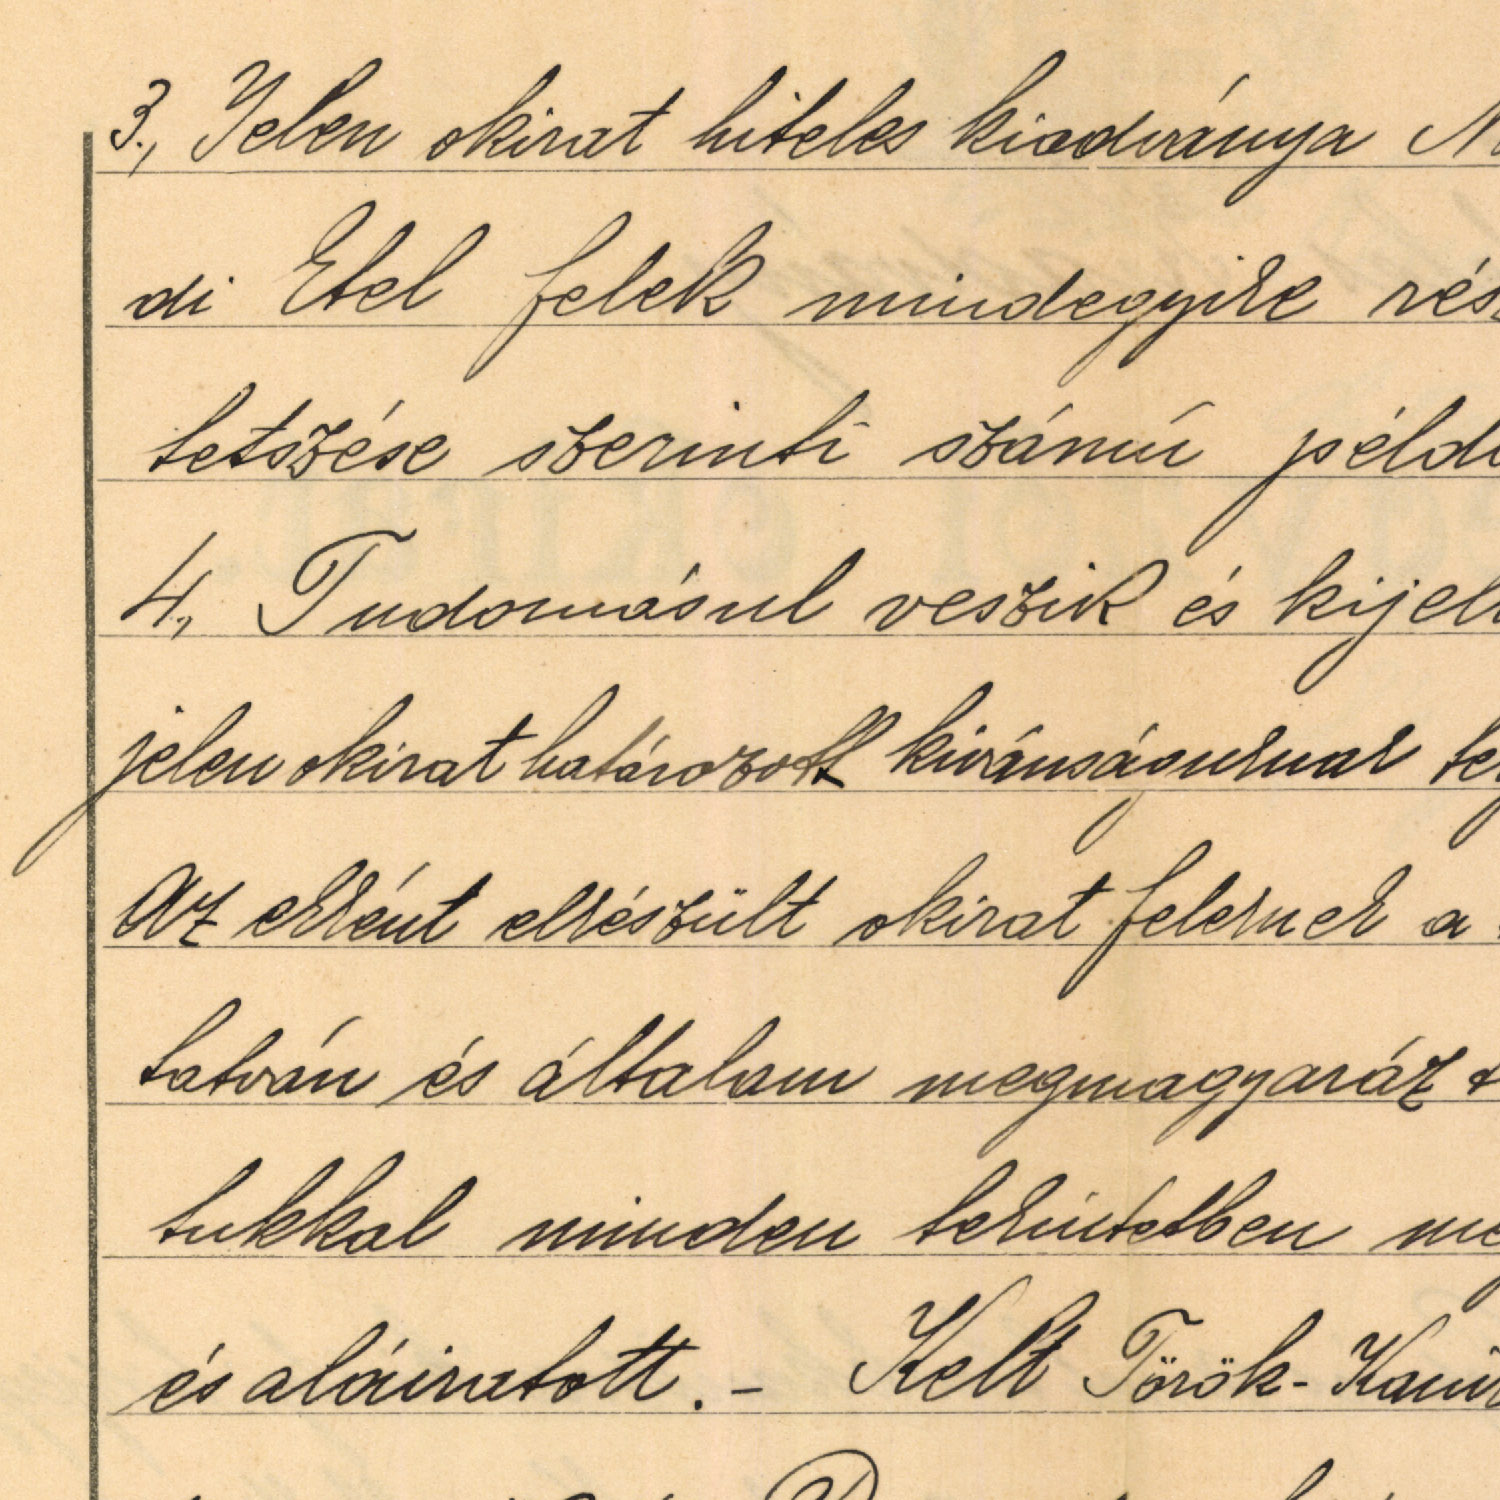 3., Jelen okirat hiteles kiadványa N
di Etel felek mindegyike rés
tetszése szerinti számú péld
4., Tudomásul veszik és kijel
jelen okirat határozott kivánságuknak
Az ekként elkészült okirat feleknek a
tatván és általam megmagyaráz
tukkal minden tekintetben me
és aláiratott. – Kelt Török-Kani